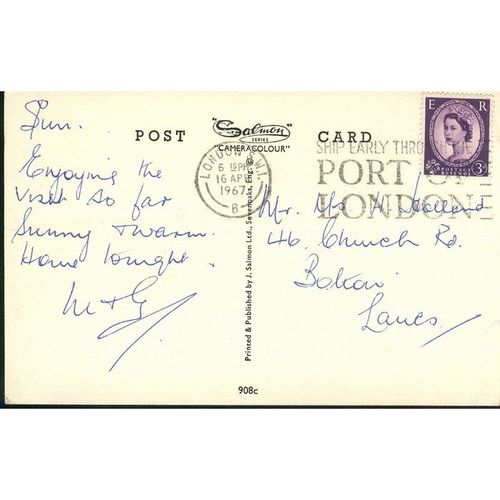 Sun.
Enjoying the
visit so far
Sunny & warm.
Home tonight.
M & G
POST CARD
"Salmon"
SERIES
"CAMERACOLOUR"
Printed & Published by J. Salmon Ltd., Sevenoaks, Eng. ©
908c
LONDON W.
6 15 PM
16 APR
1967
B
SHIP EARLY THRO THE
PORT OF
LONDON
E R
REVENUE
3D
Mr. Mrs H Holland
46. Church Rd.
Bolton
Lancs